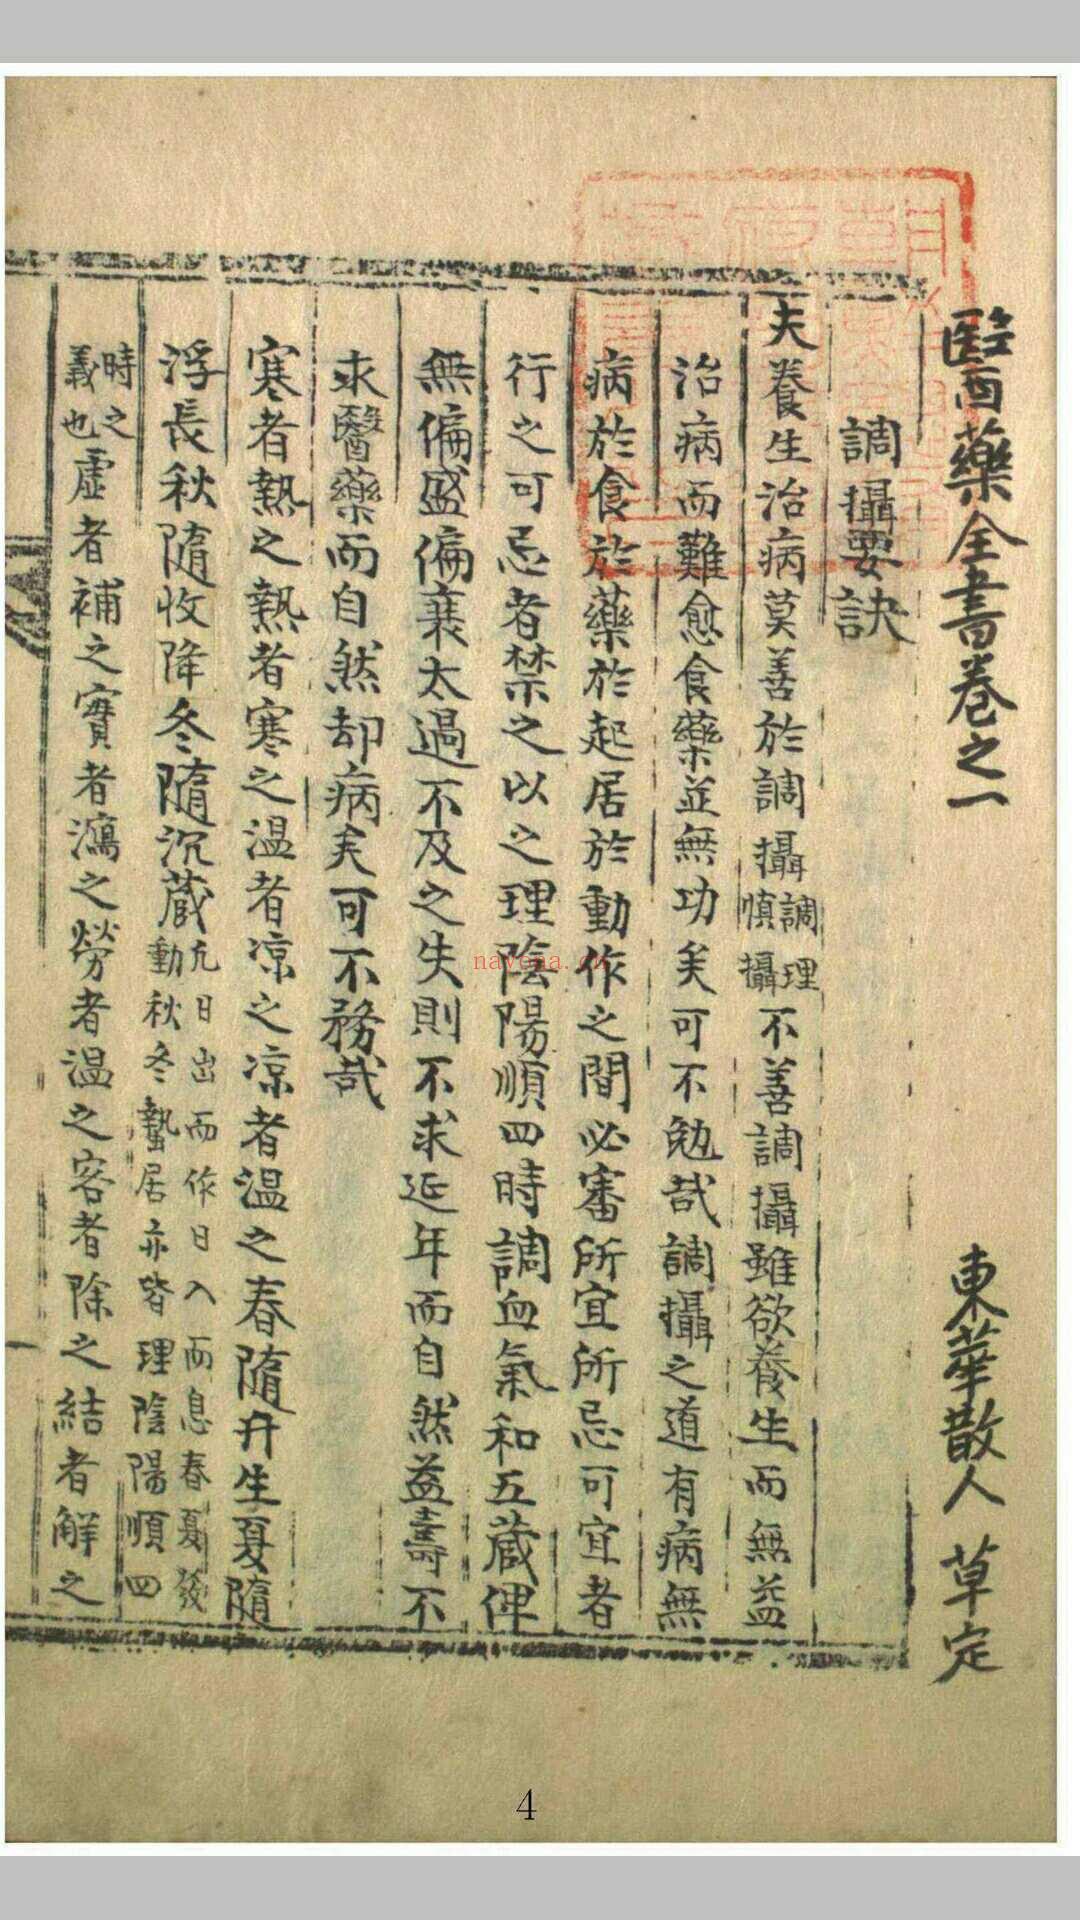 醫藥全書卷之一 東華散人 草定
調攝要訣
夫養生治病莫善於調攝調理慎攝不善調攝雖欲養生而無益
治病而難愈食藥並無功矣可不勉哉調攝之道有病無
病於食於藥於起居於動作之間必審所宜所忌可宜者
行之可忌者禁之以之理陰陽順四時調血氣和五蔵俾
無偏盛偏衰太過不及之失則不求延年而自然益壽不
求醫藥而自然却病矣可不務哉
寒者熱之熱者寒之温者凉之凉者温之春隨升生夏隨
浮長秋隨收降冬隨沉蔵凢日出而作日入而息春夏發動秋冬蟄居亦皆理陰陽順四
時之義也虛者補之實者瀉之勞者温之客者除之結者解之
一
nayona.cn
4